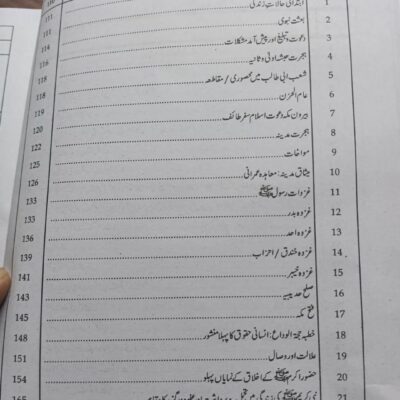 1 ابتدائی حالات زندگی 110
2 بعثت نبوی 111
3 دعوت و تبلیغ اور پیش آمدہ مشکلات 111
4 ہجرت حبشہ اولیٰ و ثانیہ 114
5 شعب ابی طالب میں محصوری / مقاطعہ 115
6 عام الحزن 118
7 بیرون مکہ دعوت اسلام سفر طائف 119
8 ہجرت مدینہ 120
9 مواخات 122
10 میثاق مدینہ: معاہدہ عمرانی 125
11 غزوات رسول ﷺ 126
12 غزوہ بدر 133
13 غزوہ احد 133
14 غزوہ خندق / احزاب 136
15 غزوہ خیبر 139
16 صلح حدیبیہ 141
17 فتح مکہ 143
18 خطبہ حجۃ الوداع: انسانی حقوق کا پہلا منشور 145
19 علالت اور وصال 148
20 حضور اکرم ﷺ کے اخلاق کے نمایاں پہلو 151
21 نبی کریم ﷺ کی زندگی میں 154
165